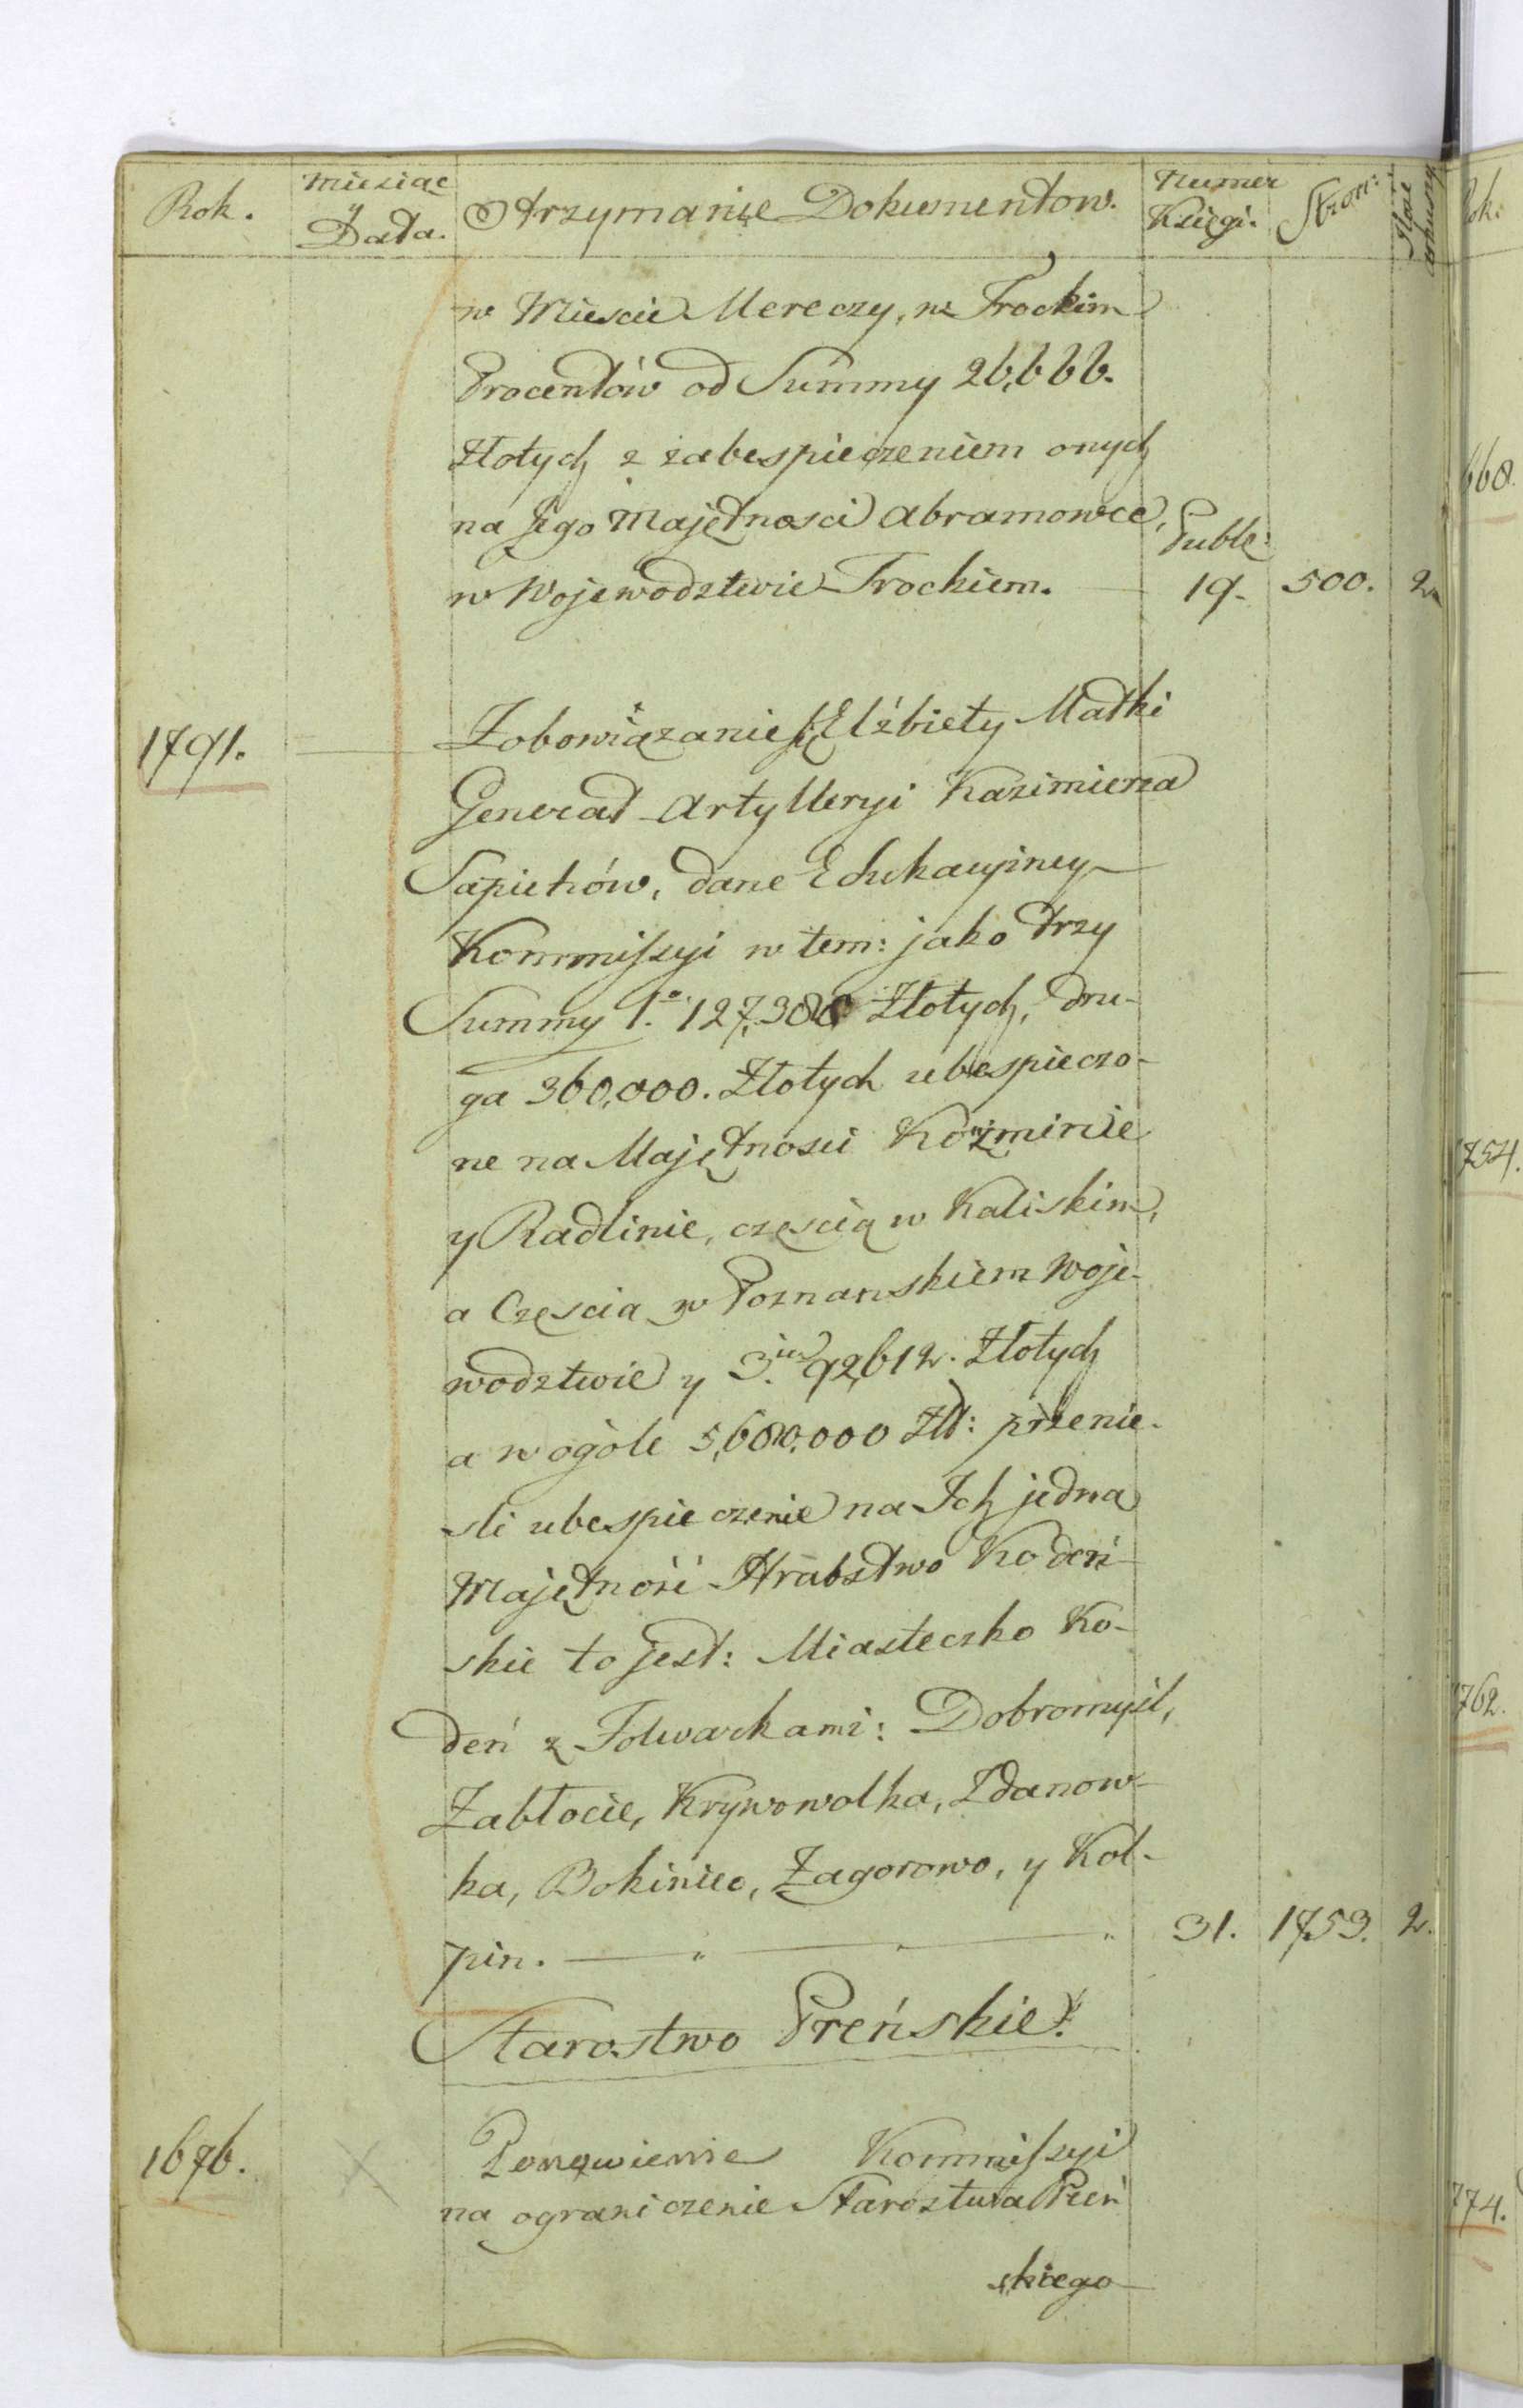 Rok. Miesiąc y Data. Otrzymanie Dokumentow. Numer Księgi. Stron:
w Miescie Mereczy, w Trockim
Procentów od Summy 26,666.
Złotych z zabespieczeniem onych
na Jego Majętnosci Abramowce,
Publ:
w Wojewodztwie Trockiem. 19. 500. 2
1791. Zobowiązanie Elżbiety Matki
Generał Artylleryi Kazimierza
Sapiehów, dane Edukacyiney
Kommissyi w tem: jako trzy
Summy 1.o 127,300 Złotych, dru-
ga 360,000. Złotych ubespieczo-
ne na Majętnosci Kozminie
y Radlinie, częscią w Kaliskim,
a Częscia w Poznanskiem Woje-
wodztwie y 3. 92,612. Złotych
a w ogóle 5,600,000 Złł: przenie-
sli ubespieczenie na Ich jedna
Majętność Hrabstwo Kodeń-
skie to jest: Miasteczko Ko-
deń z Folwarkami: Dobromyśl,
Zabłocie, Krywowolka, Zdanow-
ka, Bokiniec, Zagorowo, y Kol-
pin. 31. 1753. 2.
Starostwo Preńskie.
1676. Ponowienie Kommissyi
na ograniczenie Starostwa Preń
skiego
668.
1754.
1762.
774.